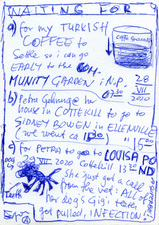 WAITING FOR
a) for my TURKISH
COFFEE to
settle so i can go
EARLY to the COM.
MUNITY GARDEN: N.P.
28
VII
2020
b) Petra
house in COTTEKILL to go to
SIDNEY BOWEN in ELLENVILLE
(we went ca
c) for PETRA to go to LOUISA PO
ND
29 VII 2020 Cottekill
She just got a CALL
from the Vet: Ay
her dog's Gigi teeth
get pulled, INFECTION!
Teeth